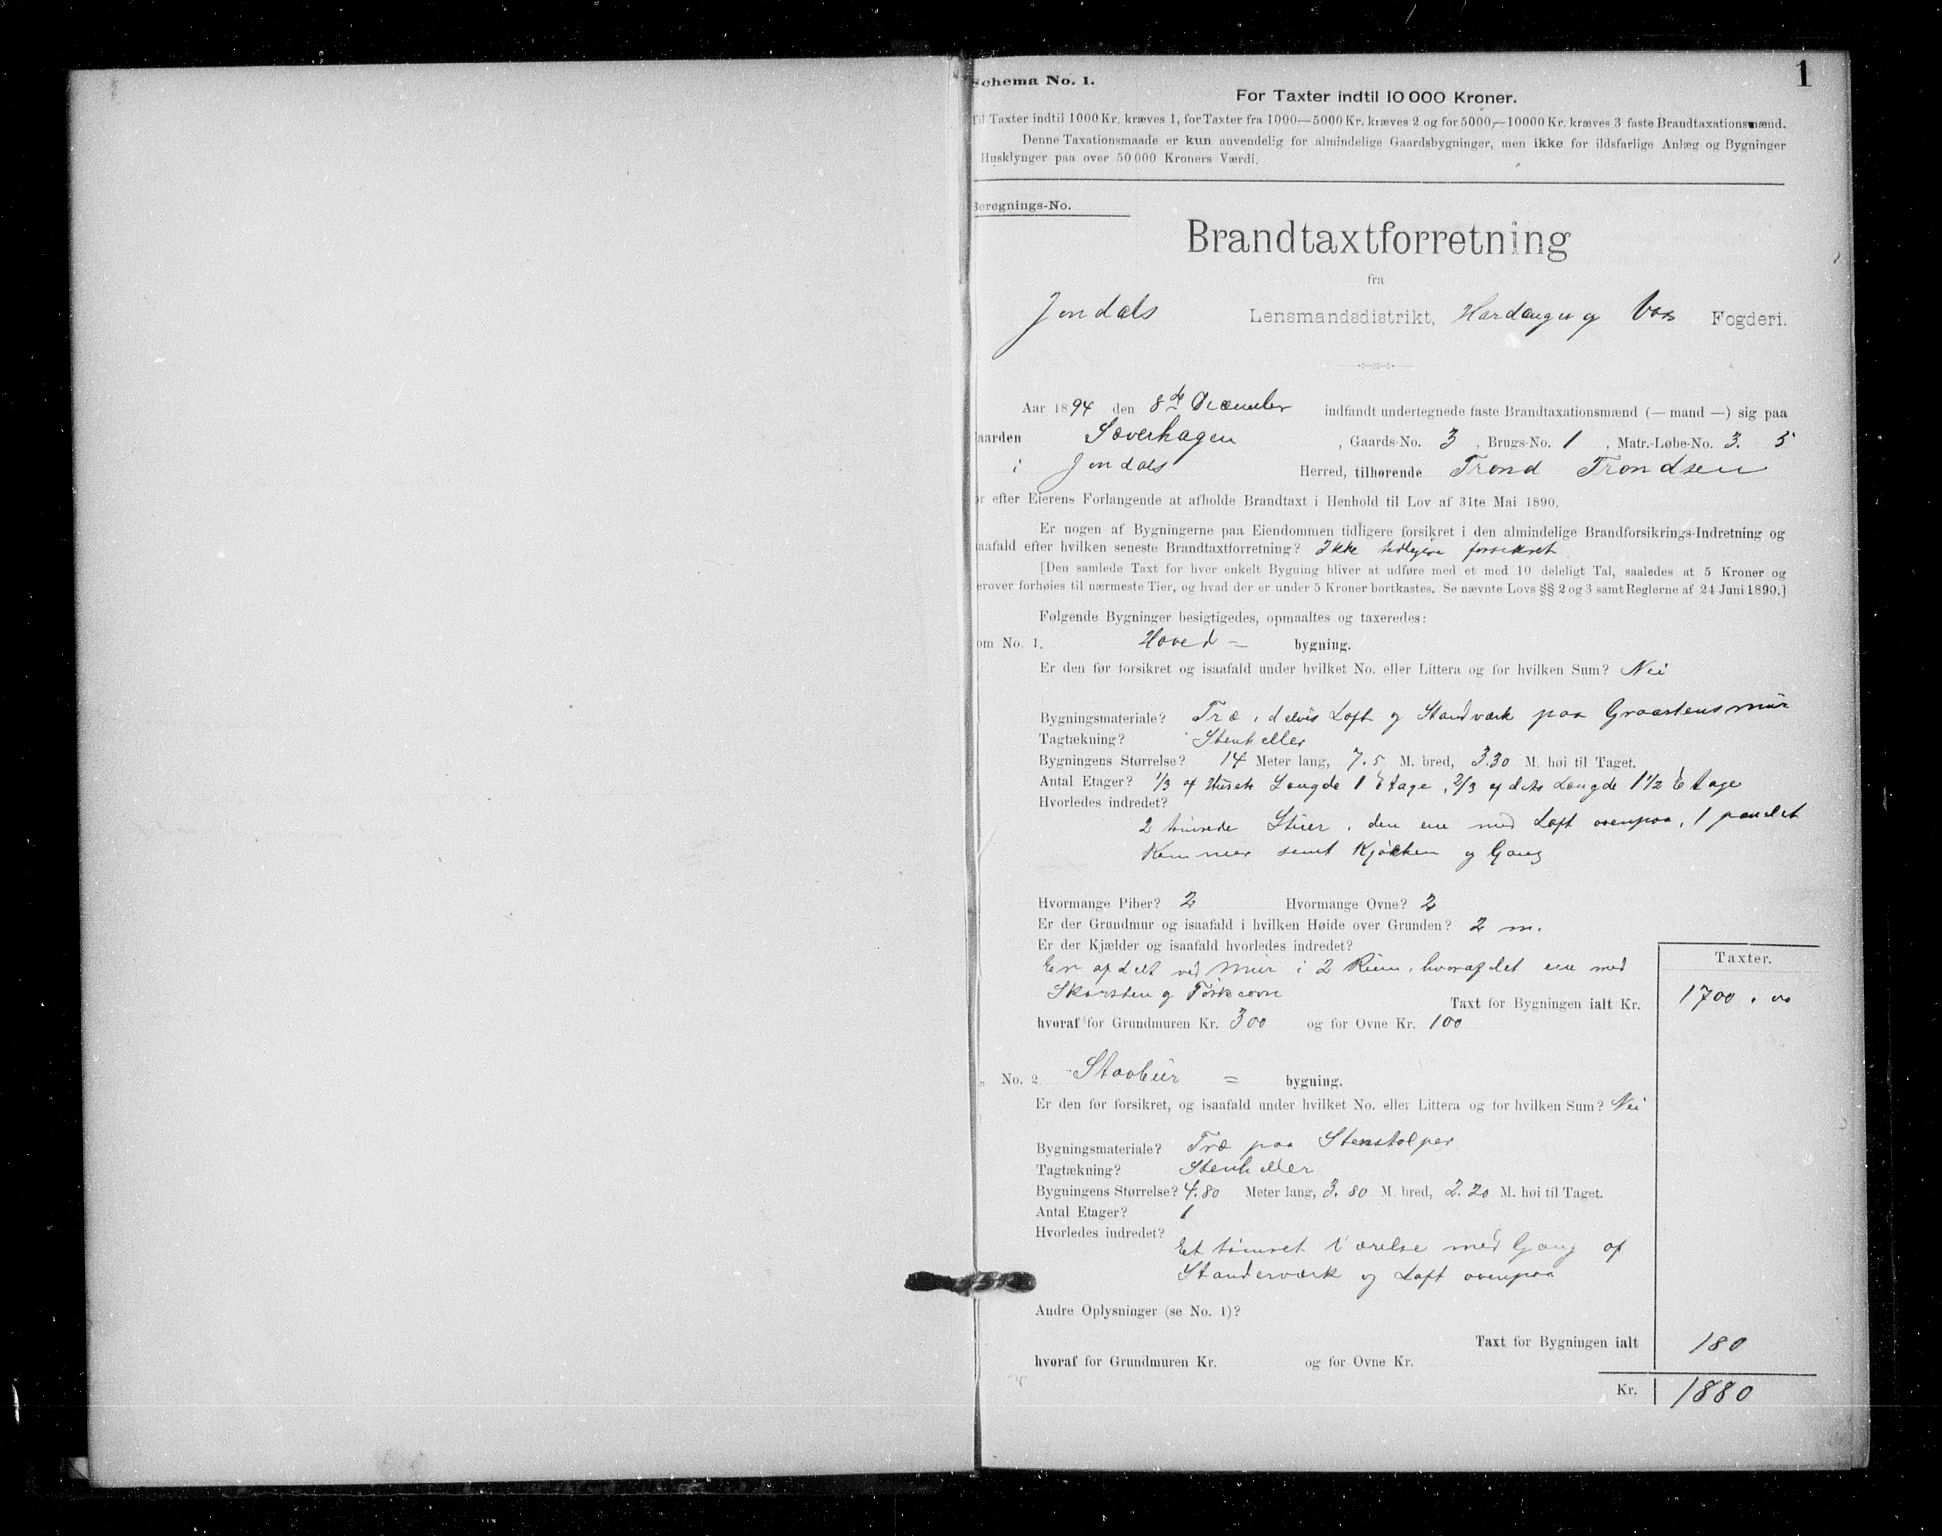 1
Schema No. 1.
For Taxter indtil 10 000 Kroner.
Til Taxter indtil 1000 Kr. kræves 1, for Taxter fra 1000—5000 Kr. kræves 2 og for 5000—10000 Kr. kræves 3 faste Brandtaxationsmænd.
Denne Taxationsmaade er kun anvendelig for almindelige Gaardsbygninger, men ikke for ildsfarlige Anlæg og Bygninger
Husklynger paa over 50 000 Kroners Værdi.
Beregnings-No.
Brandtaxtforretning
fra
Jondals Lensmandsdistrikt, Hardanger og Voss Fogderi.
Aar 1894 den 8de December indfandt undertegnede faste Brandtaxationsmænd (— mand —) sig paa
aarden Sæverhagen, Gaards-No. 3, Brugs-No. 1, Matr.-Løbe-No. 3. 5
i Jondals Herred, tilhørende Trond Trondsen
or efter Eierens Forlangende at afholde Brandtaxt i Henhold til Lov af 31te Mai 1890.
Er nogen af Bygningerne paa Eiendommen tidligere forsikret i den almindelige Brandforsikrings-Indretning og
aafald efter hvilken seneste Brandtaxtforretning? Ikke tidligere forsikret
[Den samlede Taxt for hver enkelt Bygning bliver at udføre med et med 10 deleligt Tal, saaledes at 5 Kroner og
erover forhøies til nærmeste Tier, og hvad der er under 5 Kroner bortkastes. Se nævnte Lovs §§ 2 og 3 samt Reglerne af 24 Juni 1890.]
Følgende Bygninger besigtigedes, opmaaltes og taxeredes:
om No. 1. Hoved = bygning.
Er den før forsikret og isaafald under hvilket No. eller Littera og for hvilken Sum? Nei
Bygningsmateriale? Træ, delvis Loft og Standværk paa Graastensmur
Tagtækning? Stenheller
Bygningens Størrelse? 14 Meter lang, 7.5 M. bred, 3.30 M. høi til Taget.
Antal Etager? 1/3 af Husets Længde 1 Etage, 2/3 af dets Længde 1 1/2 Etage
Hvorledes indredet?
2 tømrede Stuer, den ene med Loft ovenpaa, 1 panelet
Kammer samt Kjøkken og Gang
Hvormange Piber? 2 Hvormange Ovne? 2
Er der Grundmur og isaafald i hvilken Høide over Grunden? 2 m.
Er der Kjælder og isaafald hvorledes indredet?
Taxter.
Er afdelt ved Mur i 2 Rum, hvoraf det ene med
Skorsten og
Taxt for Bygningen ialt Kr. 1700.00
hvoraf for Grundmuren Kr. 300 og for Ovne Kr. 100
„ No. 2. Stavbur = bygning.
Er den før forsikret, og isaafald under hvilket No. eller Littera og for hvilken Sum? Nei
Bygningsmateriale? Træ paa Stenstolper
Tagtækning? Stenheller
Bygningens Størrelse? 4.80 Meter lang, 3.80 M. bred, 2.20 M. høi til Taget.
Antal Etager? 1
Hvorledes indredet?
Et tømret Værelse med Gang af
Standerværk og Loft ovenpaa
Andre Oplysninger (se No. 1)?
Taxt for Bygningen ialt 180
hvoraf for Grundmuren Kr. og for Ovne Kr.
Kr. 1880